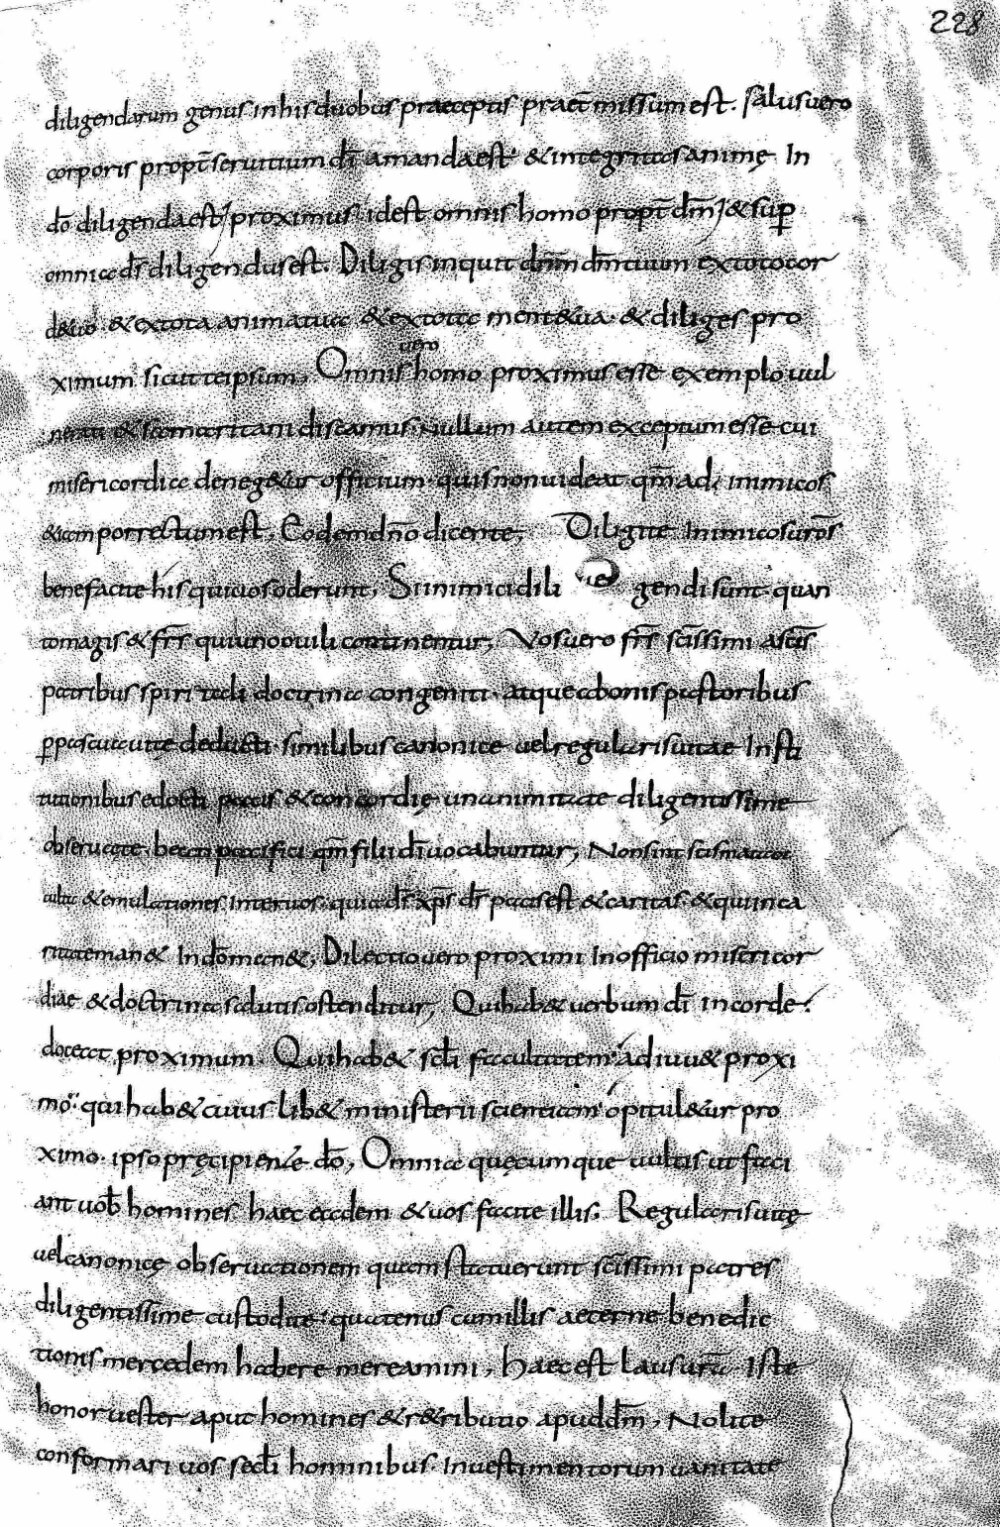 228
diligendarum genus in his duobus praeceptis praet̄missum est. salus uero
corporis propt̄ seruitium dī amanda est. & integritas animę In
dō diligenda est. proximus. id est omnis homo propt̄ dm̄. & sup̄
omnia dī diligendus est. Diligis inquit dnm̄ dm̄ tuum ex toto cor
de tuo. & ex tota anima tua & ex tota mente tua. & diliges pro
ximum sicut teipsum; Omnis uero homo proximus esse exemplo uul
nerati & samaritani discamus. Nullum autem exceptum essē cui
misericordiae deneg&ur officium. quis non uideat qm̄ ad inimicos
&iam porrectum est. Eodem dn̄o dicente; Diligite Inimicos uros̄
benefacite his qui uos oderunt; Si inimici dili gendi sunt. quan
to magis & frs̄ qui uno ouili continentur; Vos uero frs̄ scīssimi a scīs
patribus spiritali doctrina congeniti. atque a bonis pastoribus
p̱ pascua uitę deducti. similibus canonice uel regularis uitae Insti
tutionibus edocti pacis & concordię unanimitate diligentissime
obseruate. beati pacifici qm̄ filii dī uocabuntur; Non sint scismatici
&emulationes Inter uos. quia ds̄ xp̄s ds̄ pacis est & caritas. & qui in ca
ritate man& In dō man&; Dilectio uero proximi In officio misericor
diae & doctrina salutis ostenditur; Qui hab& uerbum dī in corde.
doceat proximum. Qui hab& sc̄li facultatem. adiuu& proxi
mō. qui hab& cuius lib& ministerii scientiam. opitul&ur pro
ximo. ipso pręcipiente dō; Omnia quęcumque uultis ut faci
ant uob̄ homines haec eadem & uos facite illis. Regularis uitę
uel canonicę obseruationem quam statuerunt scīssimi patres
diligentissime custodite. quatenus cum illis aeterne benedic
tionis mercedem habere mereamini; Haec est laus urā. Iste
honor uester aput homines & r&ributio apud dm̄; Nolite
conformari uos sec̄li hominibus. In uestimentorum uanitate